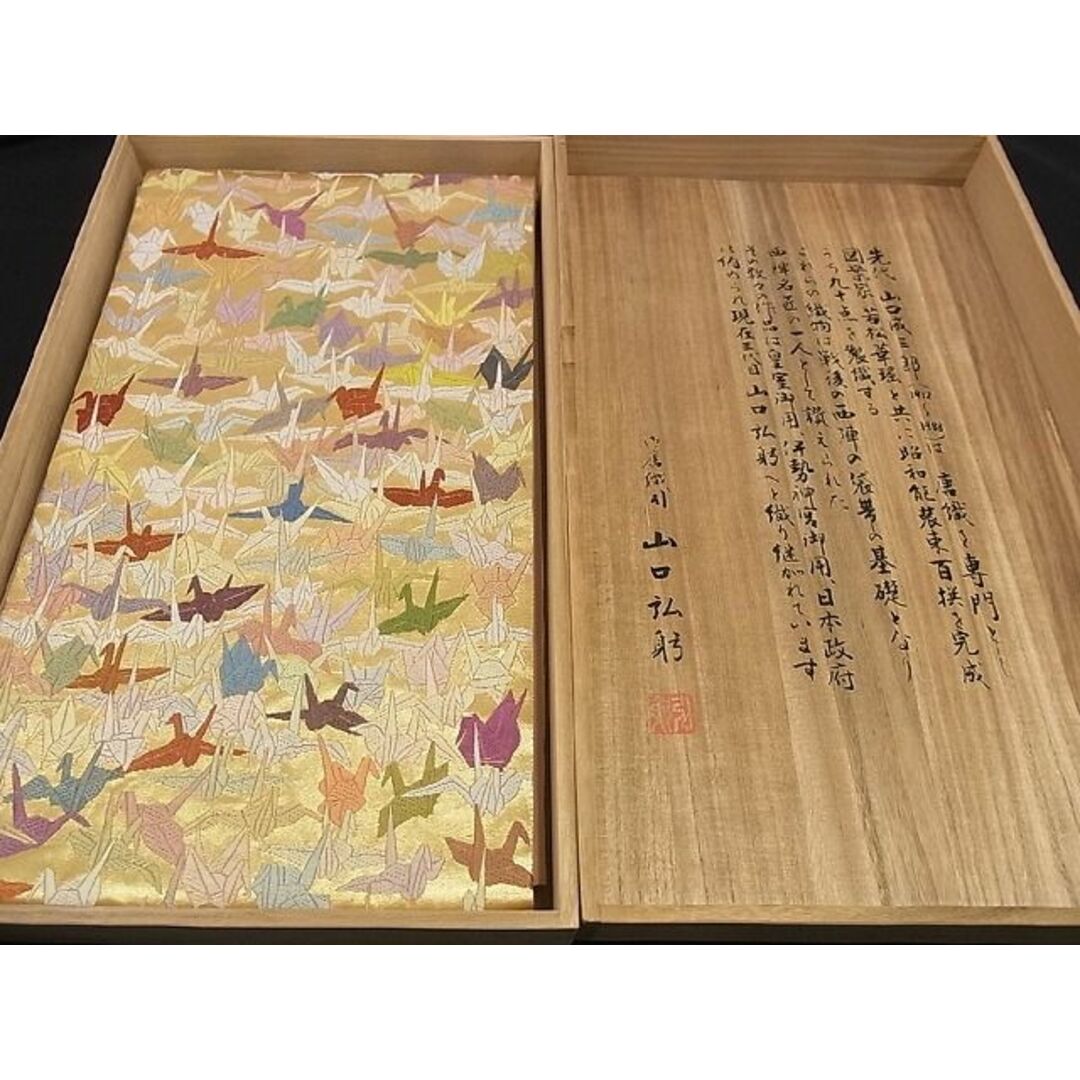 先代 山口成三郎(1912~1988)は 唐織を専門とし
図案家 若松華瑶と共に昭和能装束百撰を完成
うち九十点を製織する
これらの織物は戦後の西陣の袋帯の基礎となり
西陣名匠の一人として讃えられた
その数々の作品は皇室御用、伊勢神宮御用、日本政府
現在三代目 山口弘躬へと織り継がれています
山口弘躬